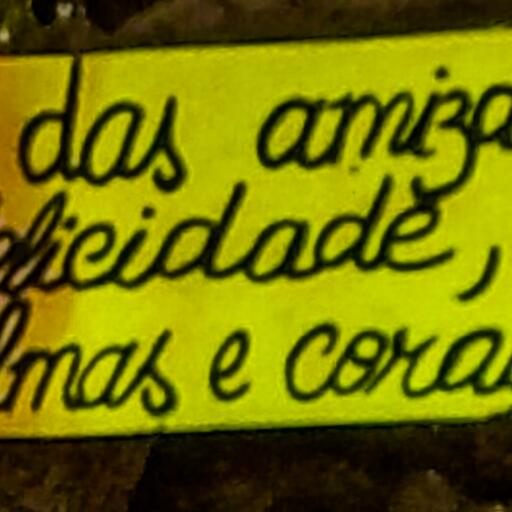 das amiza
licidade,
lmas e cora